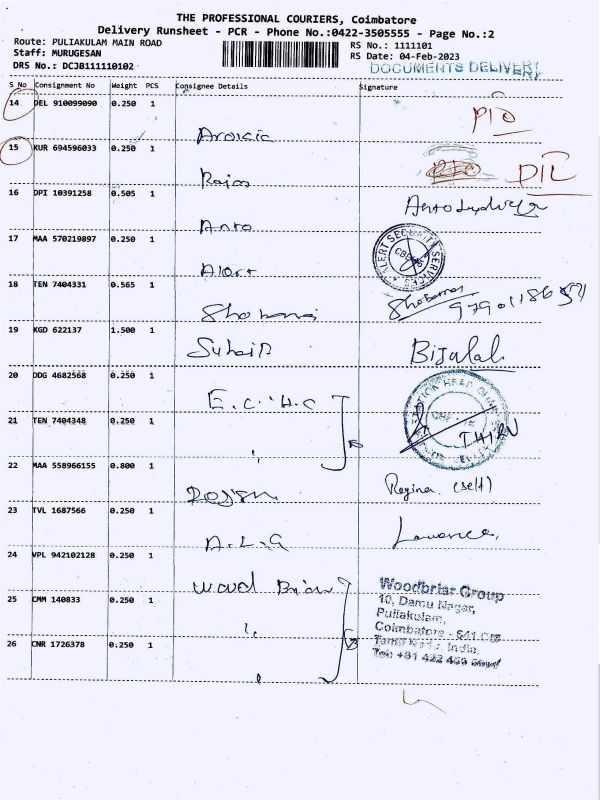 THE PROFESSIONAL COURIERS, Coimbatore
Delivery Runsheet - PCR - Phone No.:0422-3505555 - Page No.:2
Route: PULIAKULAM MAIN ROAD
RS No.: 1111101
Staff: MURUGESAN
RS Date: 04-Feb-2023
DRS No.: DCJB111110102
DOCUMENTS DELIVERY
S No Consignment No Weight PCS Consignee Details Signature
14 DEL 910099090 0.250 1
15 KUR 694596033 0.250 1
16 DPI 10391258 0.505 1
Anto
17 MAA 570219897 0.250 1
ALERT SECURITY SERVICES
Alert
18 TEN 7404331 0.565 1
Shobana
19 KGD 622137 1.500 1
20 DDG 4682568 0.250 1
E.C.H.C
21 TEN 7404348 0.250 1
THIRU
22 MAA 558966155 0.800 1
Regina (self)
23 TVL 1687566 0.250 1
A.L.G
24 VPL 942102128 0.250 1
25 CMM 140833 0.250 1
Woodbriar Group
10, Damu Nagar,
Puliakulam,
Coimbatore
Tamil Nadu, India.
26 CNR 1726378 0.250 1